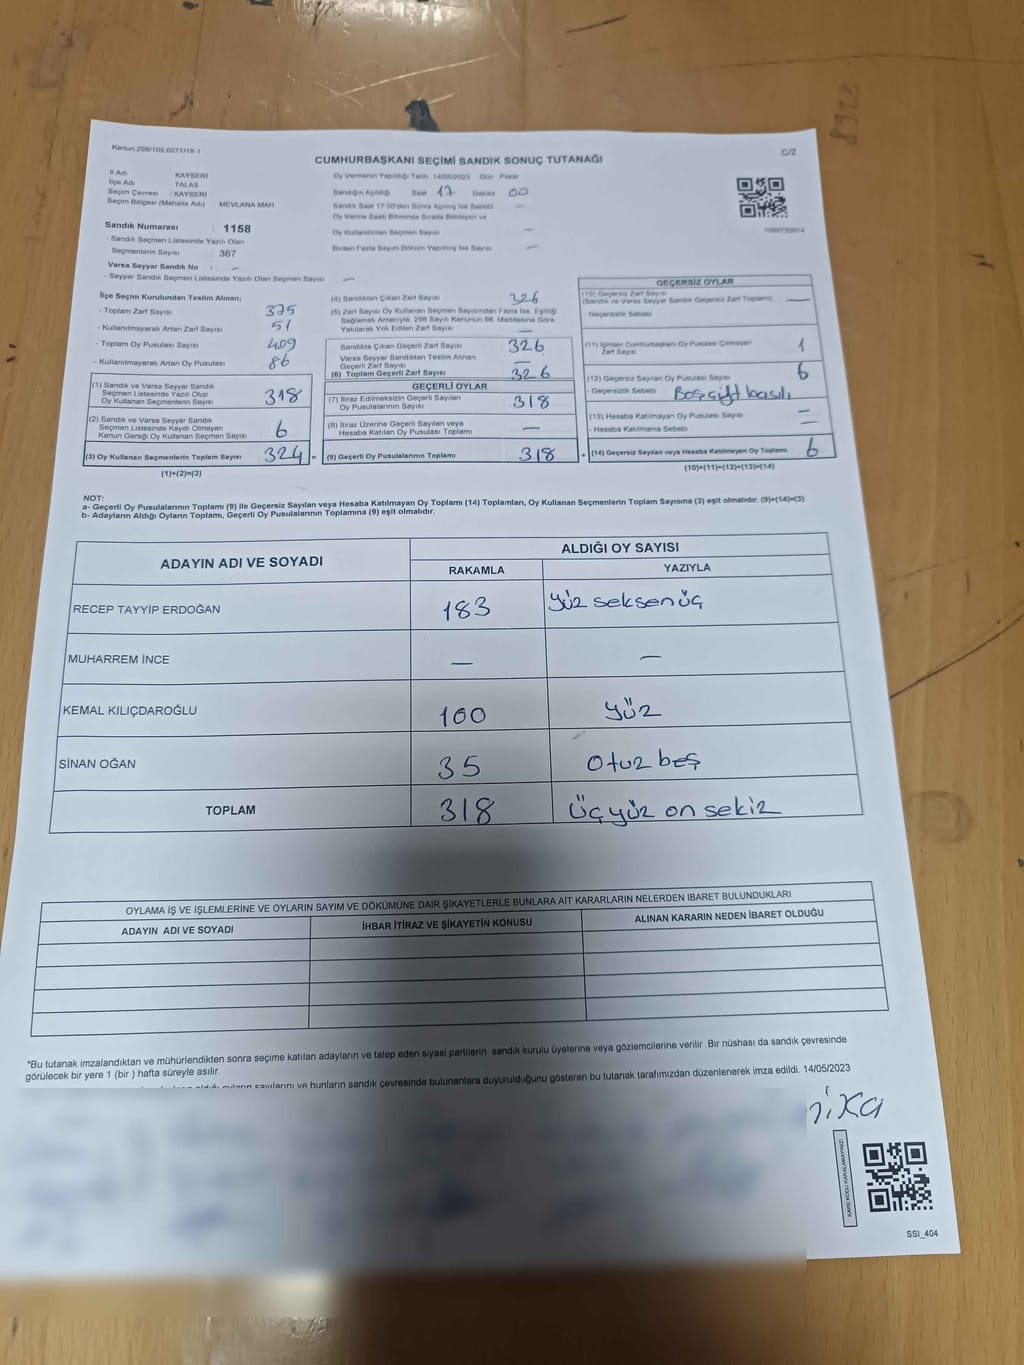 Kanun.298/105,6271/18-1
C/2
CUMHURBAŞKANI SEÇİMİ SANDIK SONUÇ TUTANAĞI
İl Adı KAYSERİ
İlçe Adı TALAS
Seçim Çevresi : KAYSERİ
Seçim Bölgesi (Mahalle Adı) MEVLANA MAH
Sandık Numarası : 1158
- Sandık Seçmen Listesinde Yazılı Olan
Seçmenlerin Sayısı : 367
Varsa Seyyar Sandık No : —
- Seyyar Sandık Seçmen Listesinde Yazılı Olan Seçmen Sayısı : —
Oy Vermenin Yapıldığı Tarih 14/05/2023 Gün Pazar
Sandığın Açıldığı Saat 17 Dakika 00
Sandık Saat 17:00'den Sonra Açılmış İse Sebebi —
Oy Verme Saati Bitiminde Sırada Bekleyen ve
Oy Kullandırılan Seçmen Sayısı —
Birden Fazla Sayım Döküm Yapılmış İse Sayısı —
İlçe Seçim Kurulundan Teslim Alınan;
- Toplam Zarf Sayısı 375
- Kullanılmayarak Artan Zarf Sayısı 51
- Toplam Oy Pusulası Sayısı 409
- Kullanılmayarak Artan Oy Pusulası 86
(1) Sandık ve Varsa Seyyar Sandık
Seçmen Listesinde Yazılı Olup
Oy Kullanan Seçmenlerin Sayısı 318
(2) Sandık ve Varsa Seyyar Sandık
Seçmen Listesinde Kayıtlı Olmayan
Kanun Gereği Oy Kullanan Seçmen Sayısı 6
(3) Oy Kullanan Seçmenlerin Toplam Sayısı 324 =
(1)+(2)=(3)
(4) Sandıktan Çıkan Zarf Sayısı 326
(5) Zarf Sayısı Oy Kullanan Seçmen Sayısından Fazla İse, Eşitliği
Sağlamak Amacıyla, 298 Sayılı Kanunun 98. Maddesine Göre
Yakılarak Yok Edilen Zarf Sayısı —
Sandıkta Çıkan Geçerli Zarf Sayısı 326
Varsa Seyyar Sandıktan Teslim Alınan
Geçerli Zarf Sayısı —
(6) Toplam Geçerli Zarf Sayısı 326
GEÇERLİ OYLAR
(7) İtiraz Edilmeksizin Geçerli Sayılan
Oy Pusulalarının Sayısı 318
(8) İtiraz Üzerine Geçerli Sayılan veya
Hesaba Katılan Oy Pusulası Toplamı —
(9) Geçerli Oy Pusulalarının Toplamı 318 +
GEÇERSİZ OYLAR
(10) Geçersiz Zarf Sayısı
(Sandık ve Varsa Seyyar Sandık Geçersiz Zarf Toplamı) —
- Geçersizlik Sebebi
(11) İçinden Cumhurbaşkanı Oy Pusulası Çıkmayan
Zarf Sayısı 1
(12) Geçersiz Sayılan Oy Pusulası Sayısı 6
- Geçersizlik Sebebi Boş çift basılı
(13) Hesaba Katılmayan Oy Pusulası Sayısı —
- Hesaba Katılmama Sebebi —
(14) Geçersiz Sayılan veya Hesaba Katılmayan Oy Toplamı 6
(10)+(11)+(12)+(13)=(14)
NOT:
a- Geçerli Oy Pusulalarının Toplamı (9) ile Geçersiz Sayılan veya Hesaba Katılmayan Oy Toplamı (14) Toplamları, Oy Kullanan Seçmenlerin Toplam Sayısına (3) eşit olmalıdır. (9)+(14)=(3)
b- Adayların Aldığı Oyların Toplamı, Geçerli Oy Pusulalarının Toplamına (9) eşit olmalıdır.
ADAYIN ADI VE SOYADI
ALDIĞI OY SAYISI
RAKAMLA YAZIYLA
RECEP TAYYİP ERDOĞAN 183 Yüz seksen üç
MUHARREM İNCE — —
KEMAL KILIÇDAROĞLU 100 yüz
SİNAN OĞAN 35 Otuz beş
TOPLAM 318 Üç yüz on sekiz
OYLAMA İŞ VE İŞLEMLERİNE VE OYLARIN SAYIM VE DÖKÜMÜNE DAİR ŞİKAYETLERLE BUNLARA AİT KARARLARIN NELERDEN İBARET BULUNDUKLARI
ADAYIN ADI VE SOYADI İHBAR İTİRAZ VE ŞİKAYETİN KONUSU ALINAN KARARIN NEDEN İBARET OLDUĞU
*Bu tutanak imzalandıktan ve mühürlendikten sonra seçime katılan adayların ve talep eden siyasi partilerin sandık kurulu üyelerine veya gözlemcilerine verilir .Bir nüshası da sandık çevresinde
görülecek bir yere 1 (bir ) hafta süreyle asılır.
oyların sayılarını ve bunların sandık çevresinde bulunanlara duyurulduğunu gösteren bu tutanak tarafımızdan düzenlenerek imza edildi. 14/05/2023
KARE KODU KARALAMAYINIZ!
SSI_404